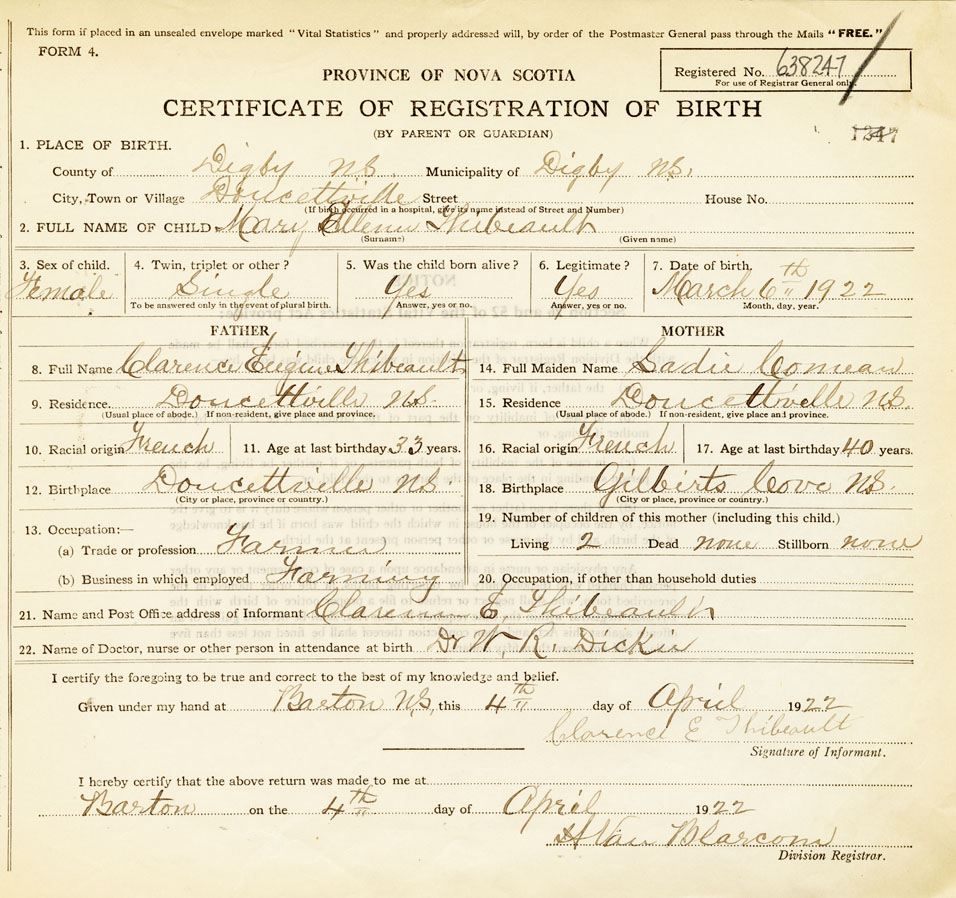 This form if placed in an unsealed envelope marked "Vital Statistics" and properly addressed will, by order of the Postmaster General pass through the Mails "FREE."
FORM 4.
Registered No. 638247
For use of Registrar General only.
PROVINCE OF NOVA SCOTIA
CERTIFICATE OF REGISTRATION OF BIRTH
(BY PARENT OR GUARDIAN)
1. PLACE OF BIRTH.
County of Digby N.S. Municipality of Digby N.S.
City, Town or Village Doucettville Street House No.
(If birth occurred in a hospital, give its name instead of Street and Number)
2. FULL NAME OF CHILD Mary Ellenn Thibeault
(Surname) (Given name)
3. Sex of child. 4. Twin, triplet or other? 5. Was the child born alive? 6. Legitimate? 7. Date of birth,
Female Single Yes Yes March 6th 1922
To be answered only in the event of plural birth. Answer, yes or no. Answer, yes or no. Month, day, year.
FATHER MOTHER
8. Full Name Clarence Eugine Thibeault 14. Full Maiden Name Sadie Comeau
9. Residence. Doucettville N.S. 15. Residence Doucettville N.S.
(Usual place of abode.) If non-resident, give place and province. (Usual place of abode.) If non-resident, give place and province.
10. Racial origin French 11. Age at last birthday 33 years. 16. Racial origin French 17. Age at last birthday 40 years.
12. Birthplace Doucettville N.S. 18. Birthplace Gilberts Cove N.S.
(City or place, province or country.) (City or place, province or country.)
13. Occupation:— 19. Number of children of this mother (including this child.)
(a) Trade or profession Farmer Living 2 Dead none Stillborn none
(b) Business in which employed Farming 20. Occupation, if other than household duties
21. Name and Post Office address of Informant Clarence E. Thibeault
22. Name of Doctor, nurse or other person in attendance at birth Dr W. R. Dickie
I certify the foregoing to be true and correct to the best of my knowledge and belief.
Given under my hand at Barton N.S. this 4th day of April 1922
Clarence E Thibeault
Signature of Informant.
I hereby certify that the above return was made to me at
Barton on the 4th day of April 1922
Van Blarcom
Division Registrar.